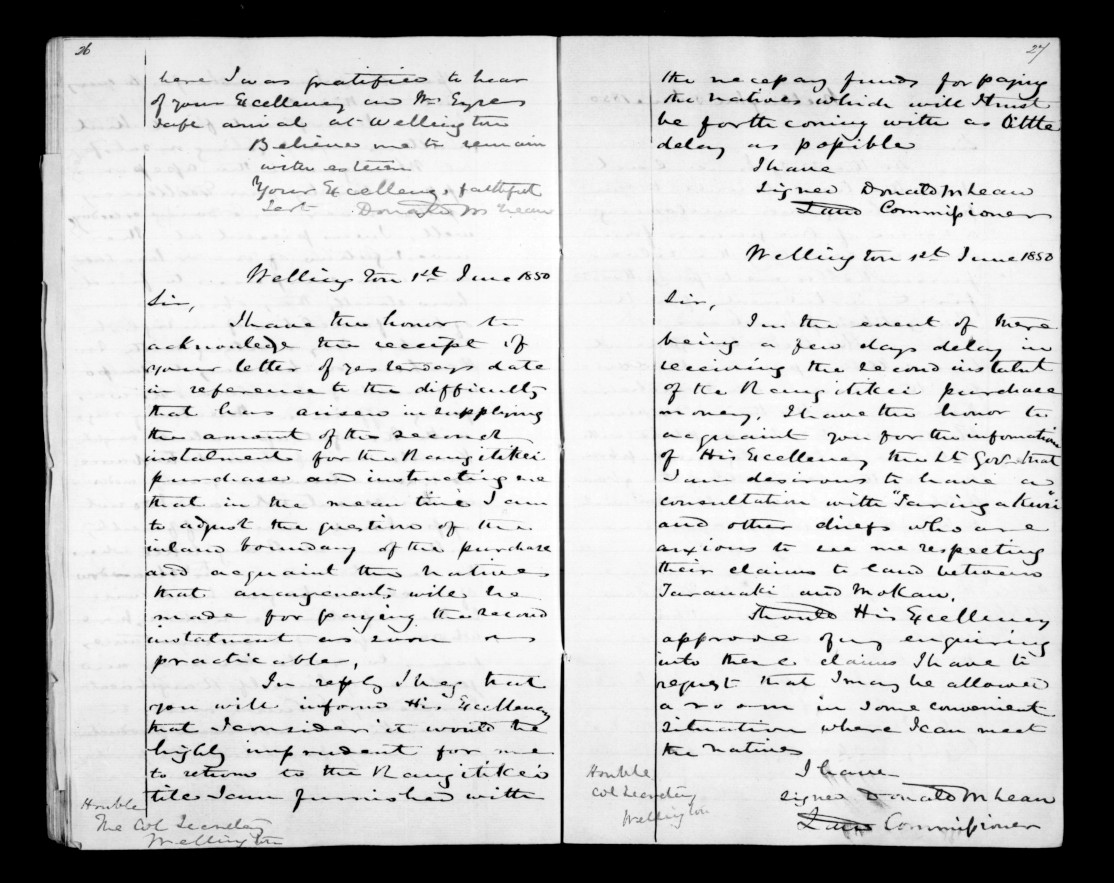 26
here I was gratified to hear
of your Excellency and Mr Eyres
safe arrival at Wellington
Believe me to remain
with esteem
Your Excellency's faithful
Servt Donald McLean
Wellington 1st June 1850
Sir,
I have the honor to
acknowledge the receipt of
your letter of yesterdays date
in reference to the difficulty
that has arisen in supplying
the amount of the second
instalment for the Rangitikei
purchase and instructing me
that in the mean time I am
to adjust the question of the
inland boundary of the purchase
and acquaint the Natives
that arrangements will be
made for paying the second
instalment as soon as
practicable,
In reply I beg that
you will inform His Excellency
that I consider it would be
highly imprudent for me
to return to the Rangitikei
till I am furnished with
Honble
The Col Secretary
Wellington
27
the necessary funds for paying
the natives which will I trust
be forthcoming with as little
delay as possible
I have
signed Donald McLean
Land Commissioner
Wellington 1st June 1850
Sir,
In the event of there
being a few days delay in
receiving the second instalt
of the Rangitikei purchase
money, I have the honor to
acquaint you for the information
of His Excellency the Lt Govr that
I am desirous to have a
consultation with "Taringa Kuri"
and other chiefs who are
anxious to see me respecting
their claims to land between
Taranaki and Mokau.
Should His Excellency
approve of my enquiring
into these claims I have to
request that I may be allowed
a room in some convenient
situation where I can meet
the natives
I have
signed Donald McLean
Land Commissioner
Honble
Col Secretary
Wellington